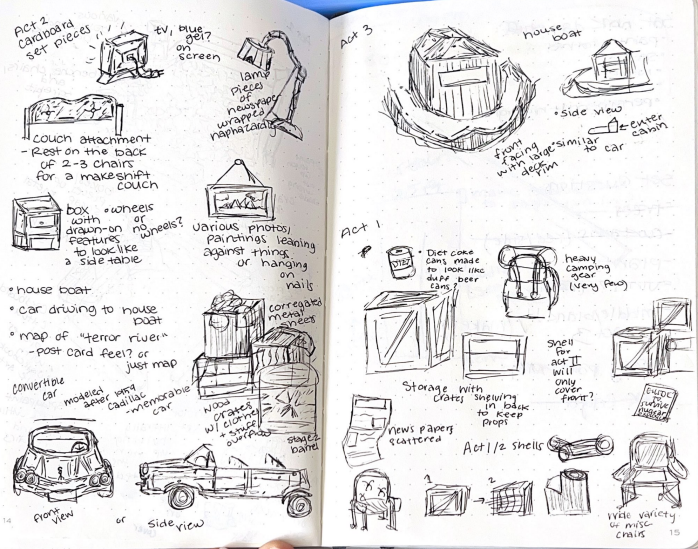 Act 2
cardboard
set pieces
tv, blue
gel?
on
screen
lamp
pieces
of
newspaper
wrapped
haphazardly
couch attachment
- Rest on the back
of 2-3 chairs
for a makeshift
couch
box
with
drawn-on
features
to look like
a side table
• wheels
or
no
wheels?
various photos/
paintings leaning
against things
or hanging
on
nails
• house boat
• car driving to house
boat
• map of "terror river"
- post card feel? or
just map
corregated
metal
sheets
convertible
car
modeled
after 1959
cadillac
- memorable
car
wood
crates
w/ clothes
+ stuff
overflow
stage 2
barrel
front
view
or
side view
14
Act 3
house
boat
• side view
← enter
cabin
similar
to car
front
facing
with large
deck
rim
Act 1
• Diet coke
cans made
to look like
duff beer
cans?
DIET
heavy
camping
gear
(very few)
Shell
for
act II
will
only
cover
front?
Storage with
crates shelving
in back
to keep
props
GUIDE
to
survive
nuclear
news papers
scattered
Act 1/2 shells
1
→
2
wide variety
of misc
chairs
15